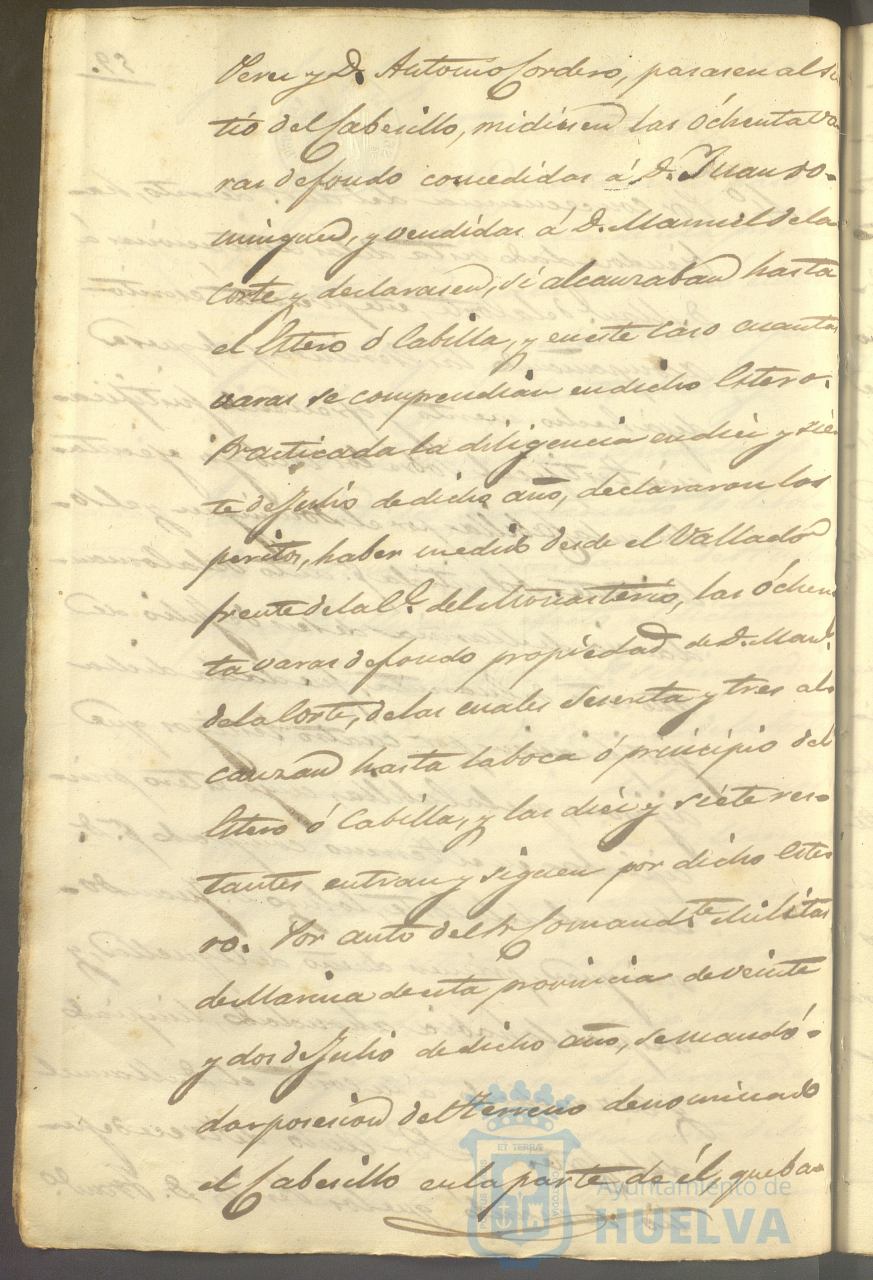 Perez y D. Antonio Cordero, pasasen al si
tio del Cabesillo, midiesen las óchenta va
ras de fondo concedidas á D. Juan Do-
minguez, y vendidas á D. Manuel de la
Corte y declarasen, si alcanzaban hasta
el Estero ó Cabilla, y en este caso cuantas
varas se comprendian en dicho Estero.
Practicada la diligencia en diez y sie
te de Julio de dicho año, decláraron los
peritos, haber medido desde el Vallado
frente de la C.ª del Monasterio, las óchen
ta varas de fondo propiedad de D. Man.l
de la Corte, de las cuales sesenta y tres al-
canzan hasta la boca ó principio del
Estero ó Cabilla, y las diez y siete res-
tantes entran y siguen por dicho Este
ro. Por auto del Sr Comand.te Militar
de Marina de esta provincia de veinte
y dos de Julio de dicho año, se mandó-
dar posesion del Terreno denominado
el Cabesillo en la parte de él que ba-
Ayuntamiento de
HUELVA